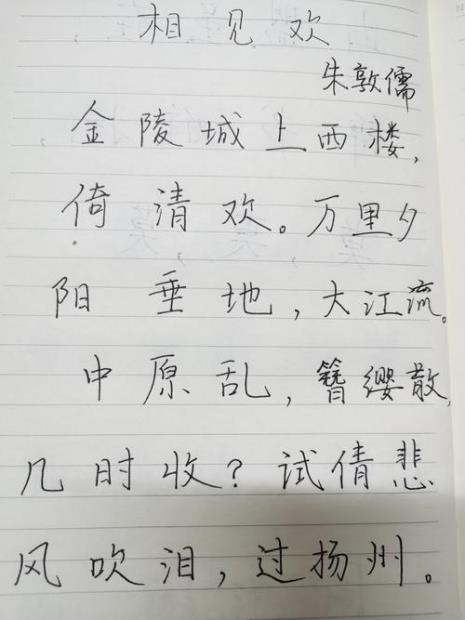 相见欢
朱敦儒
金陵城上西楼,
倚清欢。万里夕
阳垂地,大江流。
中原乱,簪缨散,
几时收?试倩悲
风吹泪,过扬州。